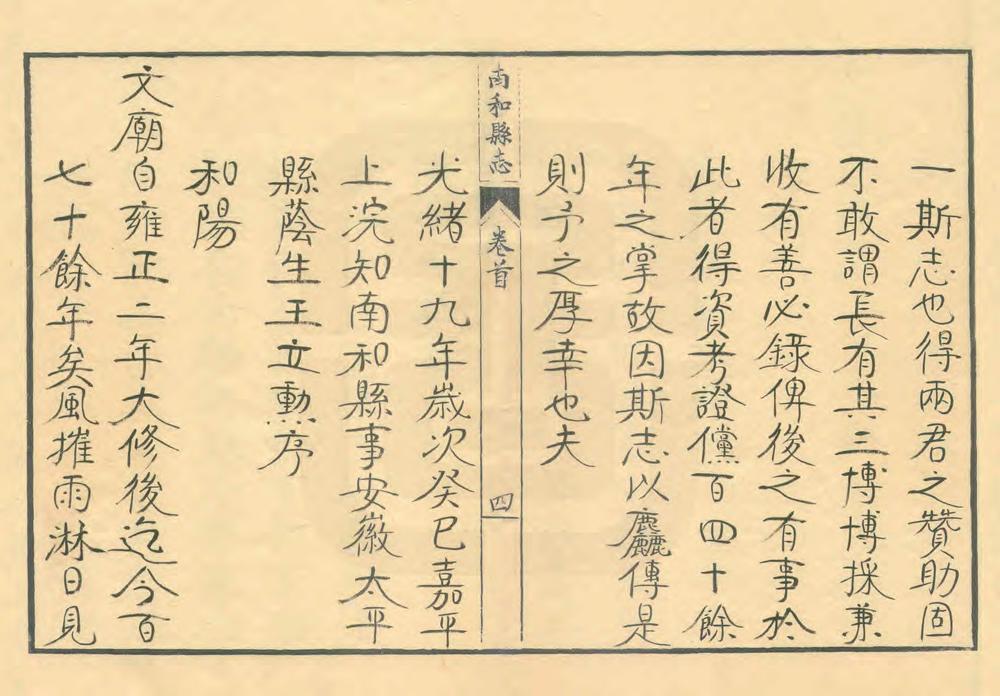 一斯志也得兩君之贊助固
不敢謂長有其三博博採兼
收有善必錄俾後之有事於
此者得資考證儻百四十餘
年之掌故因斯志以麤傳是
則予之厚幸也夫
光緒十九年歲次癸巳嘉平
上浣知南和縣事安徽太平
縣蔭生王立勳序
和陽
文廟自雍正二年大修後迄今百
七十餘年矣風摧雨淋日見
南和縣志
卷首
四